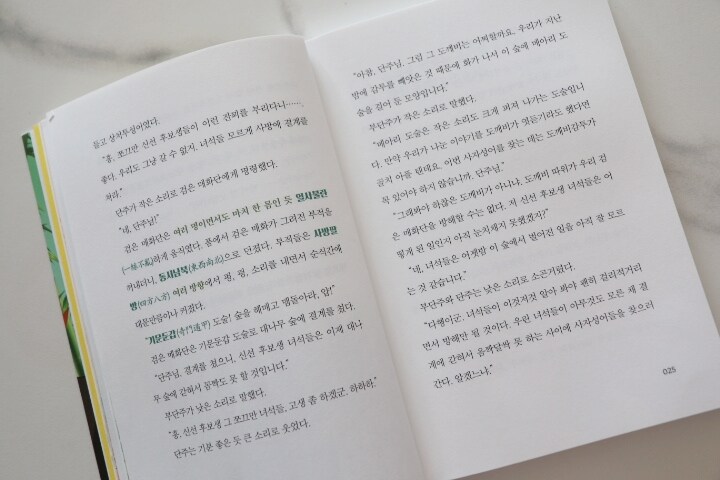 들고 상처투성이였다.
"흥, 쪼끄만 신선 후보생들이 이런 잔꾀를 부리다니…….
좋다. 우리도 그냥 갈 수 없지. 녀석들 모르게 사방에 결계를
쳐라."
단주가 작은 소리로 검은 매화단에게 명령했다.
"네, 단주님!"
검은 매화단은 여러 명이면서도 마치 한 몸인 듯 일사불란
(一絲不亂)하게 움직였다. 품에서 검은 매화가 그려진 부적을
꺼내더니, 동서남북(東西南北)으로 던졌다. 부적들은 사방팔
방(四方八方) 여러 방향에서 펑, 펑, 소리를 내면서 순식간에
대문만큼이나 커졌다.
"기문둔갑(奇門遁甲) 도술! 숲을 헤매고 맴돌아라, 얍!"
검은 매화단은 기문둔갑 도술로 대나무 숲에 결계를 쳤다.
"단주님, 결계를 쳤으니, 신선 후보생 녀석들은 이제 대나
무 숲에 갇혀서 꼼짝도 못 할 것입니다."
부단주가 낮은 소리로 말했다.
"흥, 신선 후보생 그 쪼끄만 녀석들, 고생 좀 하겠군. 하하하."
단주는 기분 좋은 듯 큰 소리로 웃었다.
"아참, 단주님, 그럼 그 도깨비는 어찌할까요. 우리가 지난
밤에 감투를 빼앗은 것 때문에 화가 나서 이 숲에 메아리 도
술을 걸어 둔 모양입니다."
부단주가 작은 소리로 말했다.
"메아리 도술은 작은 소리도 크게 퍼져 나가는 도술입니
다. 만약 우리가 나눈 이야기를 도깨비가 엿듣기라도 했다면
골치 아플 텐데요. 이번 사자성어를 찾는 데는 도깨비감투가
꼭 있어야 하지 않습니까, 단주님."
"그래봐야 하찮은 도깨비 아니냐. 도깨비 따위가 우리 검
은 매화단을 방해할 수는 없다. 저 신선 후보생 녀석들은 어
떻게 된 일인지 아직 눈치채지 못했겠지?"
"네, 녀석들은 어젯밤 이 숲에서 벌어진 일을 아직 잘 모르
는 것 같습니다."
부단주와 단주는 낮은 소리로 소곤거렸다.
"다행이군. 녀석들이 이것저것 알아 봐야 괜히 걸리적거리
면서 방해만 될 것이다. 우린 녀석들이 아무것도 모른 채 결
계에 갇혀서 옴짝달싹 못 하는 사이에 사자성어들을 찾으러
간다. 알겠느냐."
025